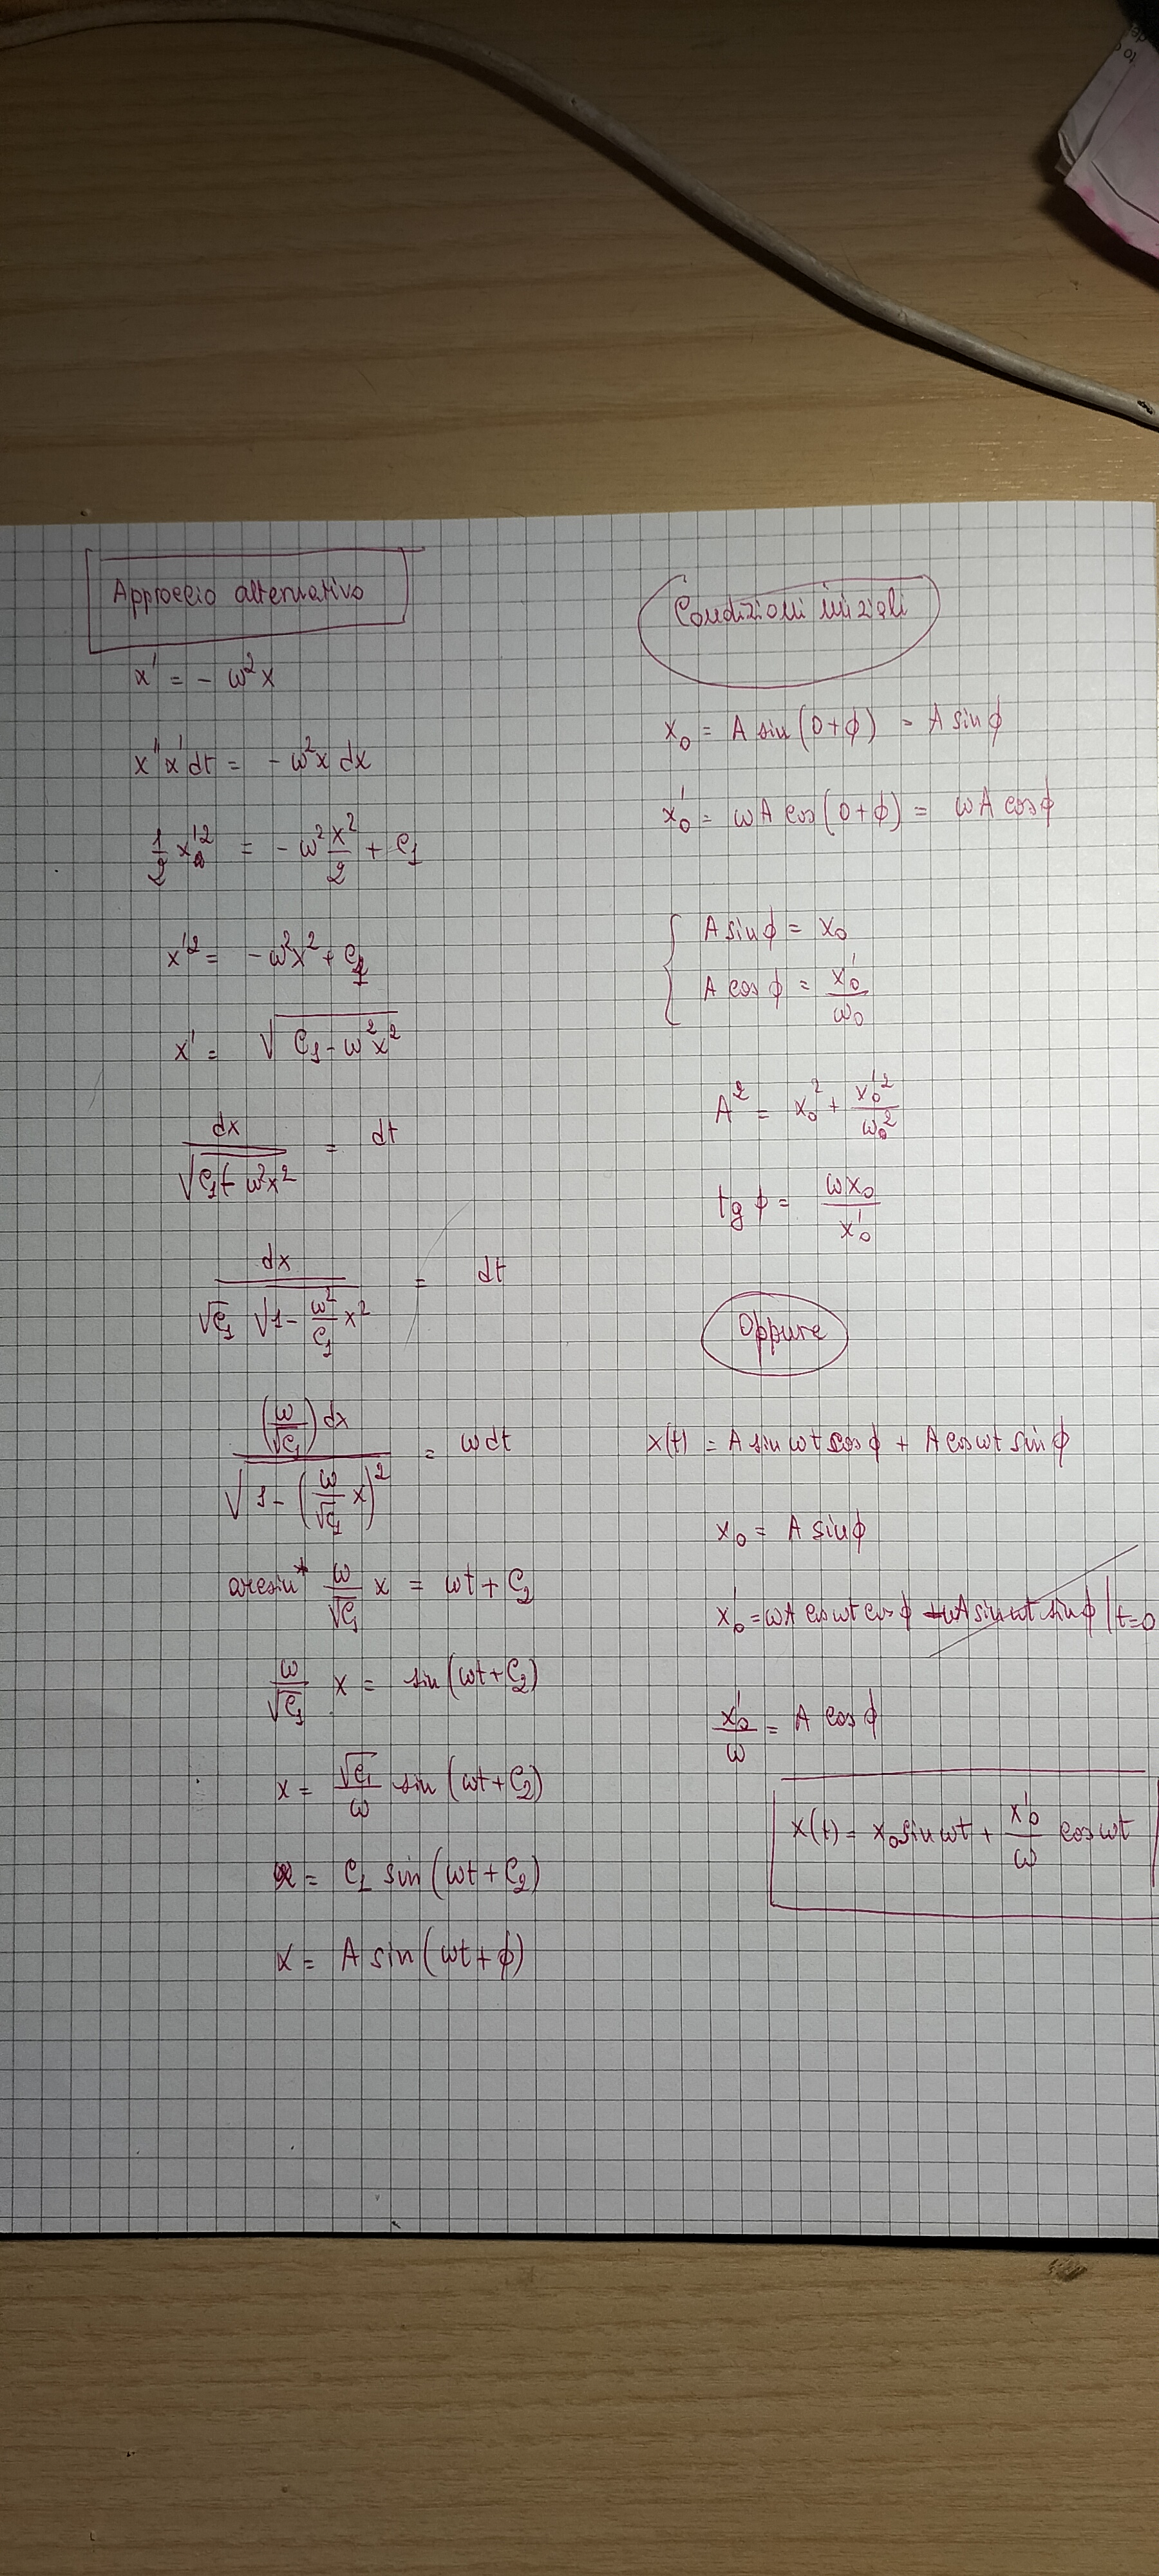 Approccio alternativo
x' = - ω²x
x''x'dt = - ω²x dx
1/2 x'² = - ω² x²/2 + C₁
x'² = - ω²x² + C₁
x' = √(C₁ - ω²x²)
dx/√(C₁ - ω²x²) = dt
dx/(√C₁ √(1 - ω²/C₁ x²)) = dt
(ω/√C₁)dx/√(1 - (ω/√C₁ x)²) = ωdt
arcsin ω/√C₁ x = ωt + C₂
ω/√C₁ x = sin(ωt + C₂)
x = √C₁/ω sin(ωt + C₂)
x = C₁ sin(ωt + C₂)
x = A sin(ωt + ϕ)
Condizioni iniziali
x₀ = A sin(0+ϕ) = A sinϕ
x'₀ = ωA cos(0+ϕ) = ωA cosϕ
{ A sinϕ = x₀
A cosϕ = x'₀/ω₀
A² = x₀² + x'₀²/ω₀²
tg ϕ = ωx₀/x'₀
Oppure
x(t) = A sin ωt cos ϕ + A cos ωt sin ϕ
x₀ = A sinϕ
x'₀ = ωA cos ωt cos ϕ - ωA sin ωt sin ϕ |t=0
x'₀/ω = A cos ϕ
x(t) = x₀ sin ωt + x'₀/ω cos ωt